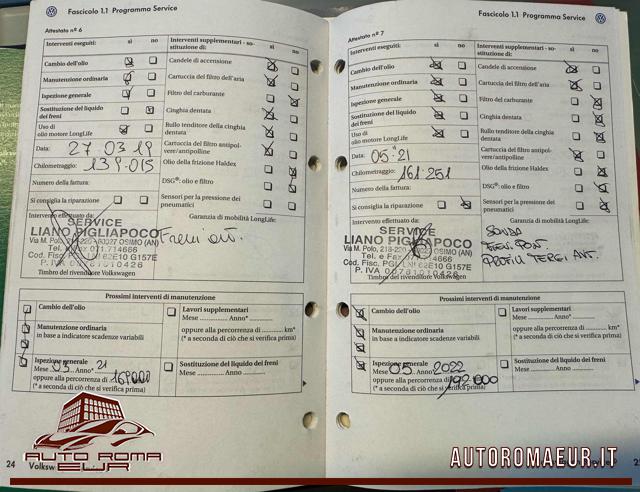 Fascicolo 1.1 Programma Service
Attestato nº 6
Interventi eseguiti: sì no
Interventi supplementari - so-
stituzione di: sì no
Cambio dell'olio
Manutenzione ordinaria
Ispezione generale
Sostituzione del liquido
dei freni
Uso di
olio motore LongLife
Data: 27 03 19
Chilometraggio: 139.015
Numero della fattura:
Si consiglia la riparazione
Candele di accensione
Cartuccia del filtro dell'aria
Filtro del carburante
Cinghia dentata
Rullo tenditore della cinghia
dentata
Cartocci del filtro antipol-
vere/antipolline
Olio della frizione Haldex
DSG®: olio e filtro
Sensori per la pressione dei
pneumatici
Intervento effettuato da:
Garanzia di mobilità LongLife:
SERVICE
LIANO PIGLIAPOCO
Via M. Polo, 218-220 - 60027 OSIMO (AN)
P. IVA
Timbro del rivenditore Volkswagen
Prossimi interventi di manutenzione
Cambio dell'olio
Manutenzione ordinaria
in base a indicatore scadenze variabili
Ispezione generale
Mese 03 Anno* 21
oppure alla percorrenza di 169000
(* a seconda di ciò che si verifica prima)
Lavori supplementari
Mese Anno*
oppure alla percorrenza di km*
(* a seconda di ciò che si verifica prima)
Sostituzione del liquido dei freni
Mese Anno
24
AUTO ROMA
EUR
Fascicolo 1.1 Programma Service
Attestato nº 7
Interventi eseguiti: sì no
Interventi supplementari - so-
stituzione di: sì no
Cambio dell'olio
Manutenzione ordinaria
Ispezione generale
Sostituzione del liquido
dei freni
Uso di
olio motore LongLife
Data: 05·21
Chilometraggio: 161.251
Numero della fattura:
Si consiglia la riparazione
Candele di accensione
Cartuccia del filtro dell'aria
Filtro del carburante
Cinghia dentata
Rullo tenditore della cinghia
dentata
Cartocci del filtro antipol-
vere/antipolline
Olio della frizione Haldex
DSG®: olio e filtro
Sensori per la pressione dei
pneumatici
Intervento effettuato da:
Garanzia di mobilità LongLife:
SERVICE
LIANO PIGLIAPOCO
Tel. e Fax
P. IVA
Timbro del rivenditore Volkswagen
Prossimi interventi di manutenzione
Cambio dell'olio
Manutenzione ordinaria
in base a indicatore scadenze variabili
Ispezione generale
Mese 05 Anno 2022
oppure alla percorrenza di 192000
(* a seconda di ciò che si verifica prima)
Lavori supplementari
Mese Anno*
oppure alla percorrenza di km*
(* a seconda di ciò che si verifica prima)
Sostituzione del liquido dei freni
Mese Anno
AUTOROMAEUR.IT